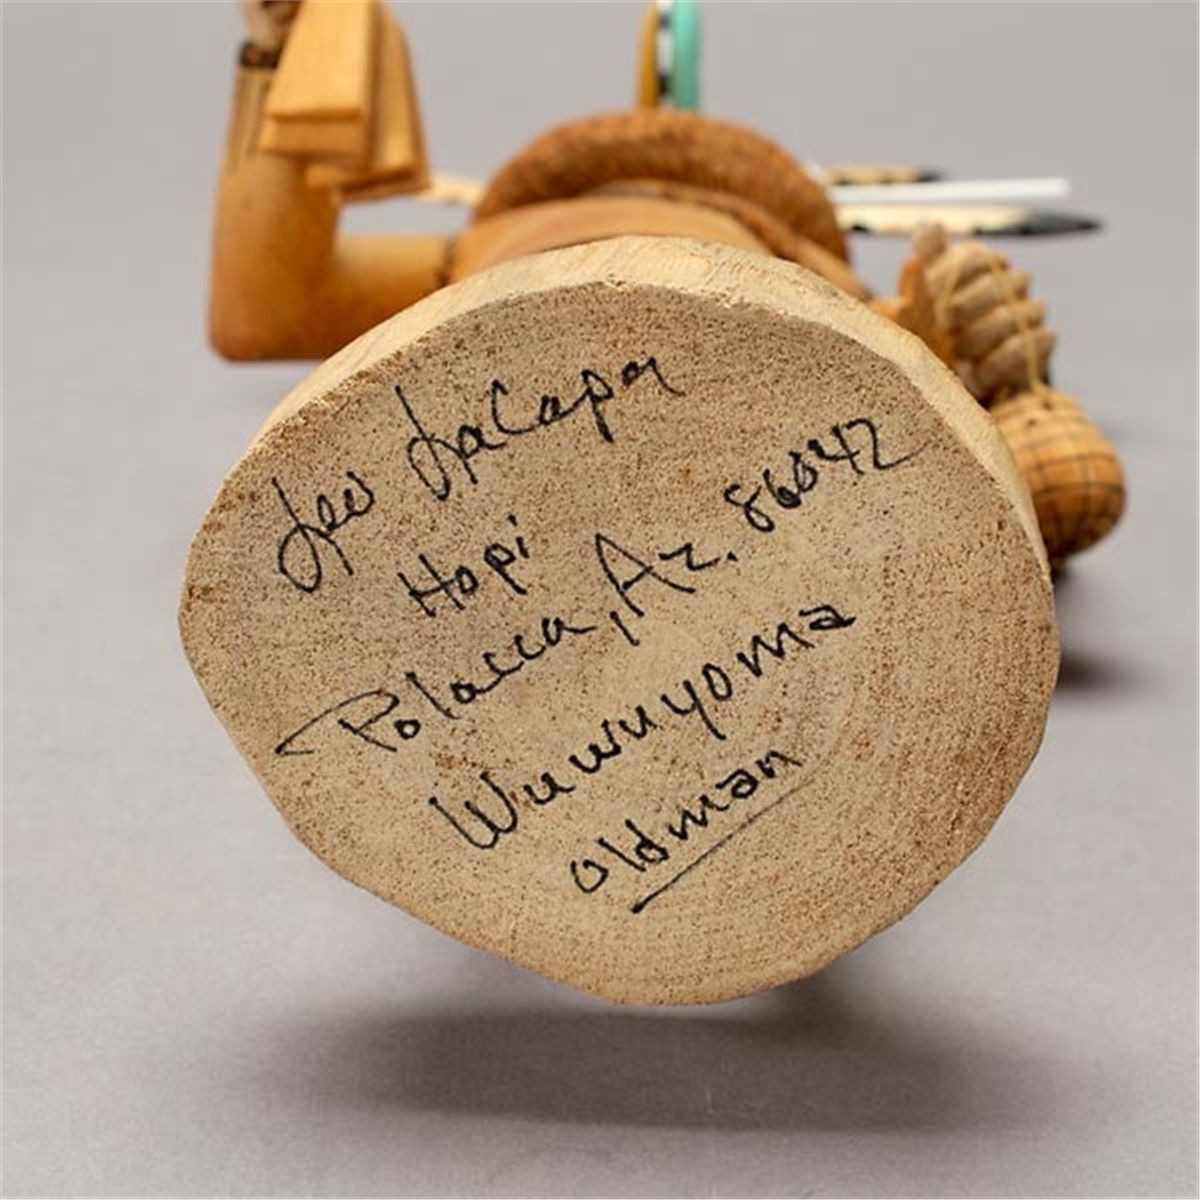 Leo LaCapa
Hopi
Polacca, Az. 86042
Wuwuyoma
oldman